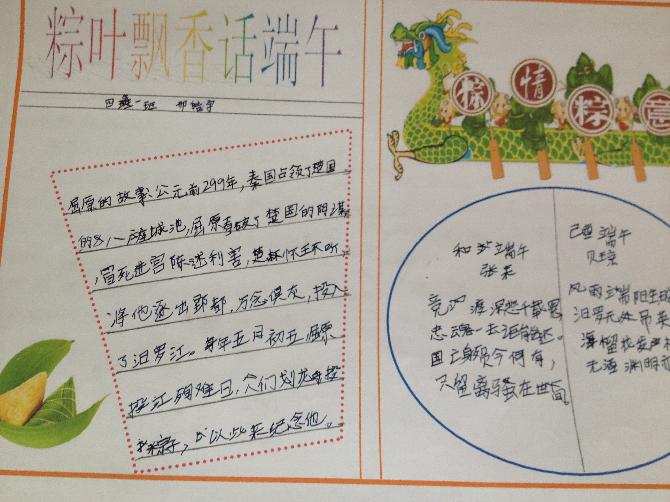 粽叶飘香话端午
四 一班
屈原的故事:公元前299年,秦国占领了楚国
的8座城池,屈原看破了楚国的阴谋
,冒死进宫陈述利害,楚怀王不听,
将他逐出郢都,万念俱灰,投入
了汨罗江。每年五月初五屈原
投江殉难日,人们划龙舟投
粽子,以此来纪念他。
粽 情 粽 意
和 端午
张耒
竞渡深悲千载冤,
忠魂一去讵能还。
国亡身殒今何有,
只留离骚在世间。
己酉端午
贝琼
风雨端阳生
汨罗无处吊
海榴花发
无酒渊明亦